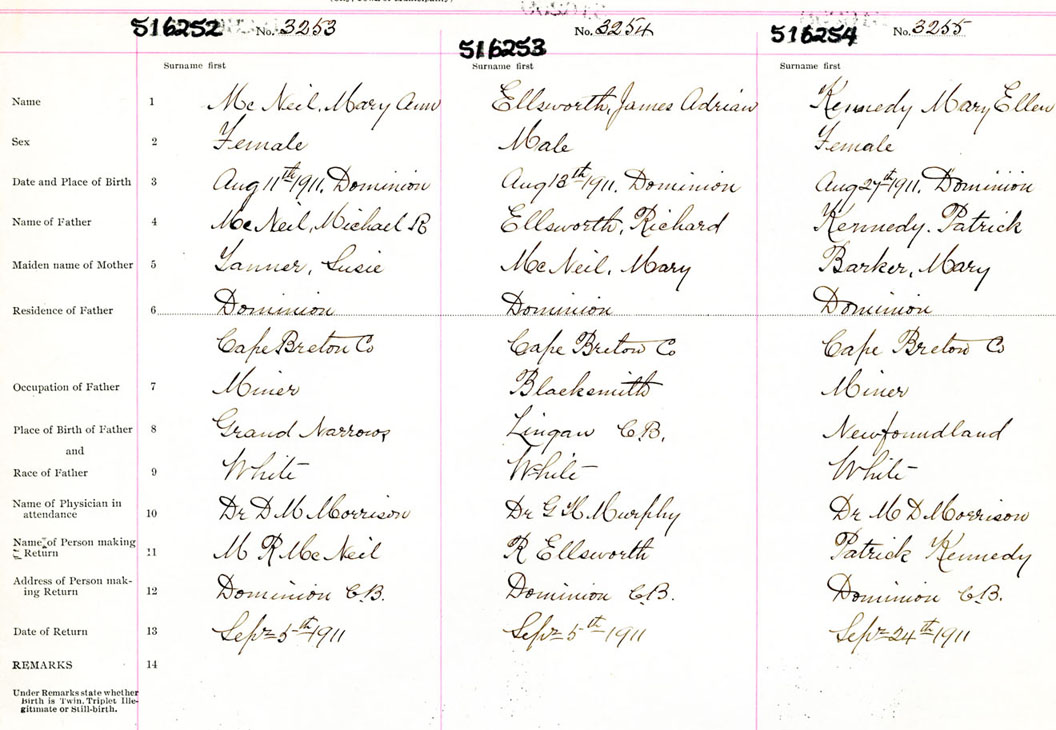 516252 No. 3253
516253 No. 3254
516254 No. 3255
Surname first Surname first Surname first
Name 1 Mc Neil, Mary Ann Ellsworth, James Adrian Kennedy Mary Ellen
Sex 2 Female Male Female
Date and Place of Birth 3 Aug 11th 1911. Dominion Aug 13th 1911. Dominion Aug 27th 1911. Dominion
Name of Father 4 Mc Neil, Michael R Ellsworth, Richard Kennedy. Patrick
Maiden name of Mother 5 Tanner, Susie Mc Neil, Mary Barker, Mary
Residence of Father 6 Dominion Dominion Dominion
Cape Breton Co Cape Breton Co Cape Breton Co
Occupation of Father 7 Miner Blacksmith Miner
Place of Birth of Father 8 Grand Narrows Lingan C.B. Newfoundland
and
Race of Father 9 White White White
Name of Physician in
attendance 10 Dr D M Morrison Dr G H Murphy Dr M D Morrison
Name of Person making
Return 11 M R Mc Neil R Ellsworth Patrick Kennedy
Address of Person mak-
ing Return 12 Dominion C.B. Dominion C.B. Dominion C.B.
Date of Return 13 Sept 5th 1911 Sept 5th 1911 Sept 24th 1911
REMARKS 14
Under Remarks state whether
Birth is Twin, Triplet Ille-
gitimate or Still-birth.